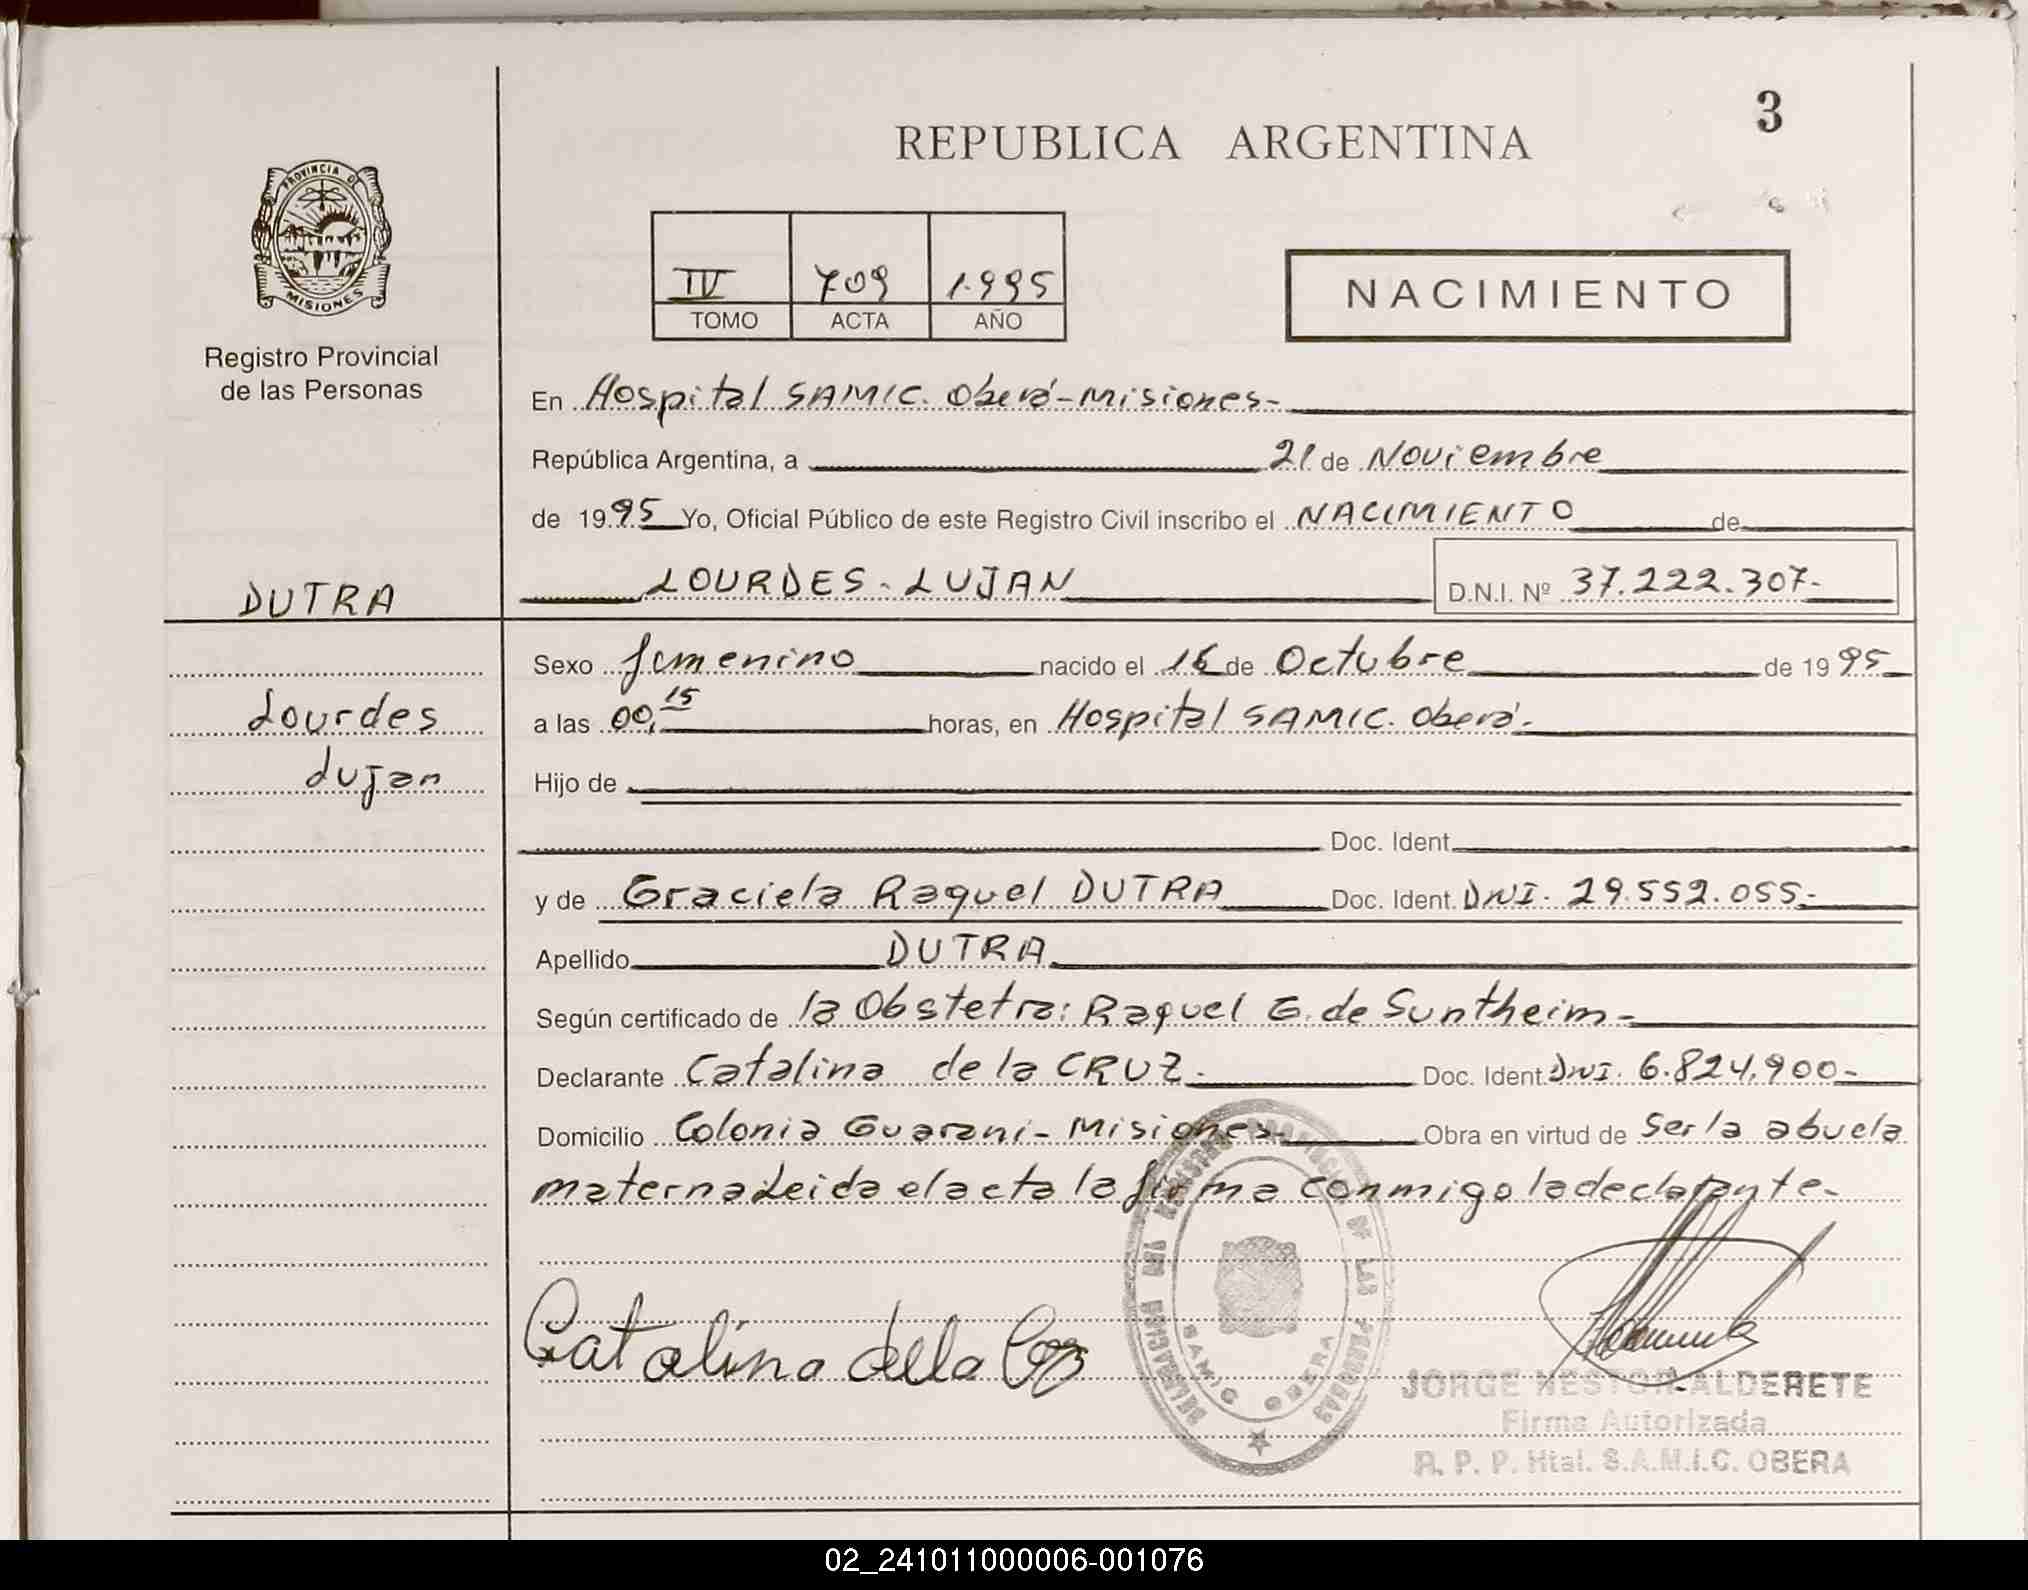 3
REPUBLICA ARGENTINA
PROVINCIA DE
MISIONES
Registro Provincial
de las Personas
IV 709 1.995
TOMO ACTA AÑO
NACIMIENTO
En Hospital SAMIC. Oberá-Misiones-
República Argentina, a 21 de Noviembre
de 1995 Yo, Oficial Público de este Registro Civil inscribo el NACIMIENTO de
DUTRA
LOURDES - LUJAN D.N.I. Nº 37.222.307-
Sexo femenino nacido el 16 de Octubre de 1995
Lourdes
a las 00,15 horas, en Hospital SAMIC. Oberá-
Lujan
Hijo de
Doc. Ident.
y de Graciela Raquel DUTRA Doc. Ident. DNI. 29.552.055-
Apellido DUTRA
Según certificado de la Obstetra: Raquel G. de Suntheim-
Declarante Catalina de la CRUZ. Doc. Ident. DNI. 6.824.900-
Domicilio Colonia Guarani - Misiones- Obra en virtud de ser la abuela
materna Leida el acta la firma conmigo la declarante-
Catalina della Cruz
DELEGACION DEL REGISTRO PROVINCIAL DE LAS PERSONAS
SAMIC OBERA
JORGE NESTOR ALDERETE
Firma Autorizada
R. P. P. Htal. S.A.M.I.C. OBERA
02_241011000006-001076